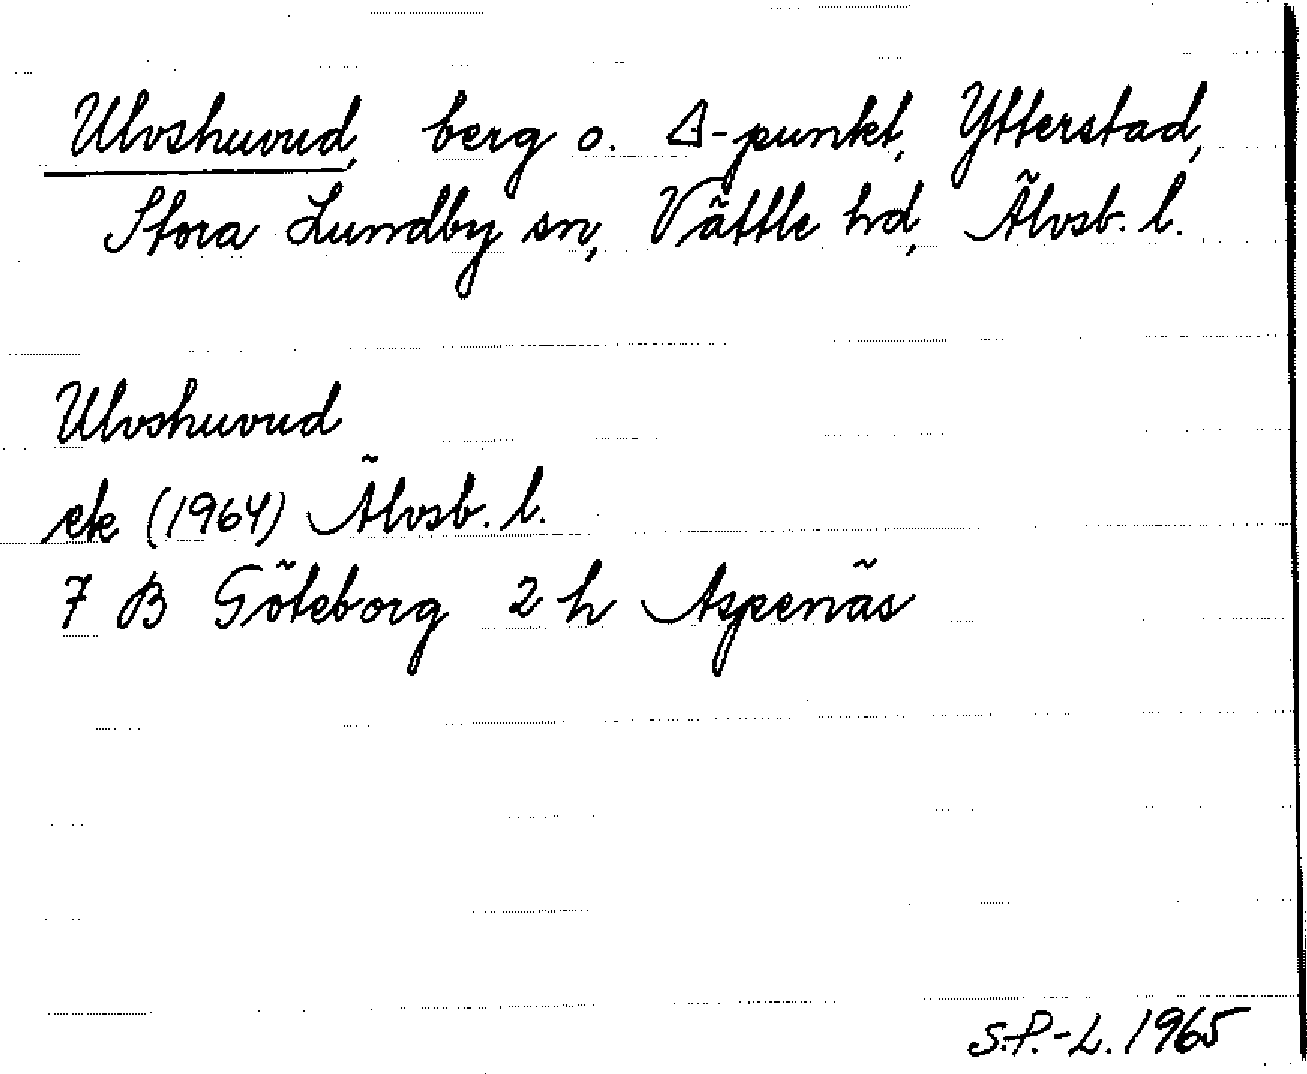 Ulvshuvud, berg o. △-punkt, Ytterstad,
Stora Lundby sn, Vättle hd, Älvsb. l.
Ulvshuvud
ek (1964) Älvsb. l.
7 B Göteborg 2 h Aspenäs
S.P.-L. 1965